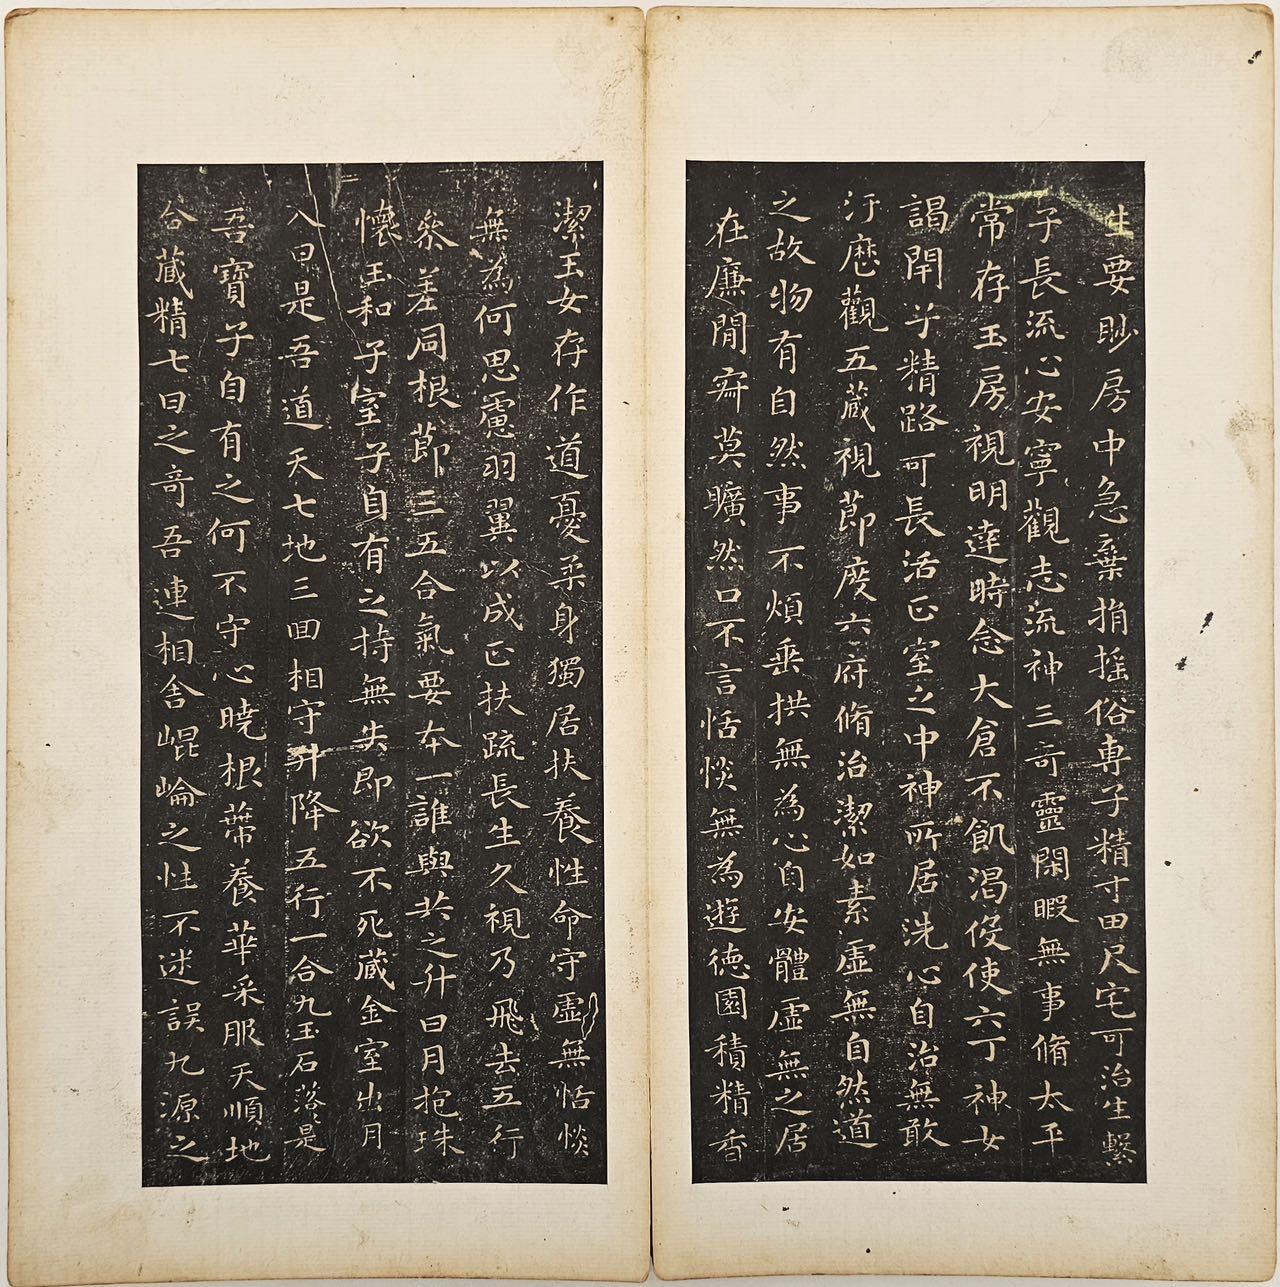 生要眇房中急棄捐搖俗專子精寸田尺宅可治生繫
子長流心安寧觀志流神三奇靈閑暇無事脩太平
常存玉房視明達時念大倉不飢渴役使六丁神女
謁閉子精路可長活正室之中神所居洗心自治無敢
汙歷觀五藏視節度六府脩治潔如素虛無自然道
之故物有自然事不煩垂拱無為心自安體虛無之居
在廉間寂莫曠然口不言恬惔無為遊德園積精香
潔玉女存作道憂柔身獨居扶養性命守虛無恬惔
無為何思慮羽翼以成正扶疏長生久視乃飛去五行
參差同根節三五合氣要本一誰與共之升日月抱珠
懷玉和子室子自有之持無失即欲不死藏金室出月
入日是吾道天七地三回相守升降五行一合九玉石落落是
吾寶子自有之何不守心曉根蔕養華采服天順地
合藏精七日之奇吾連相舍崐崘之性不迷誤九源之